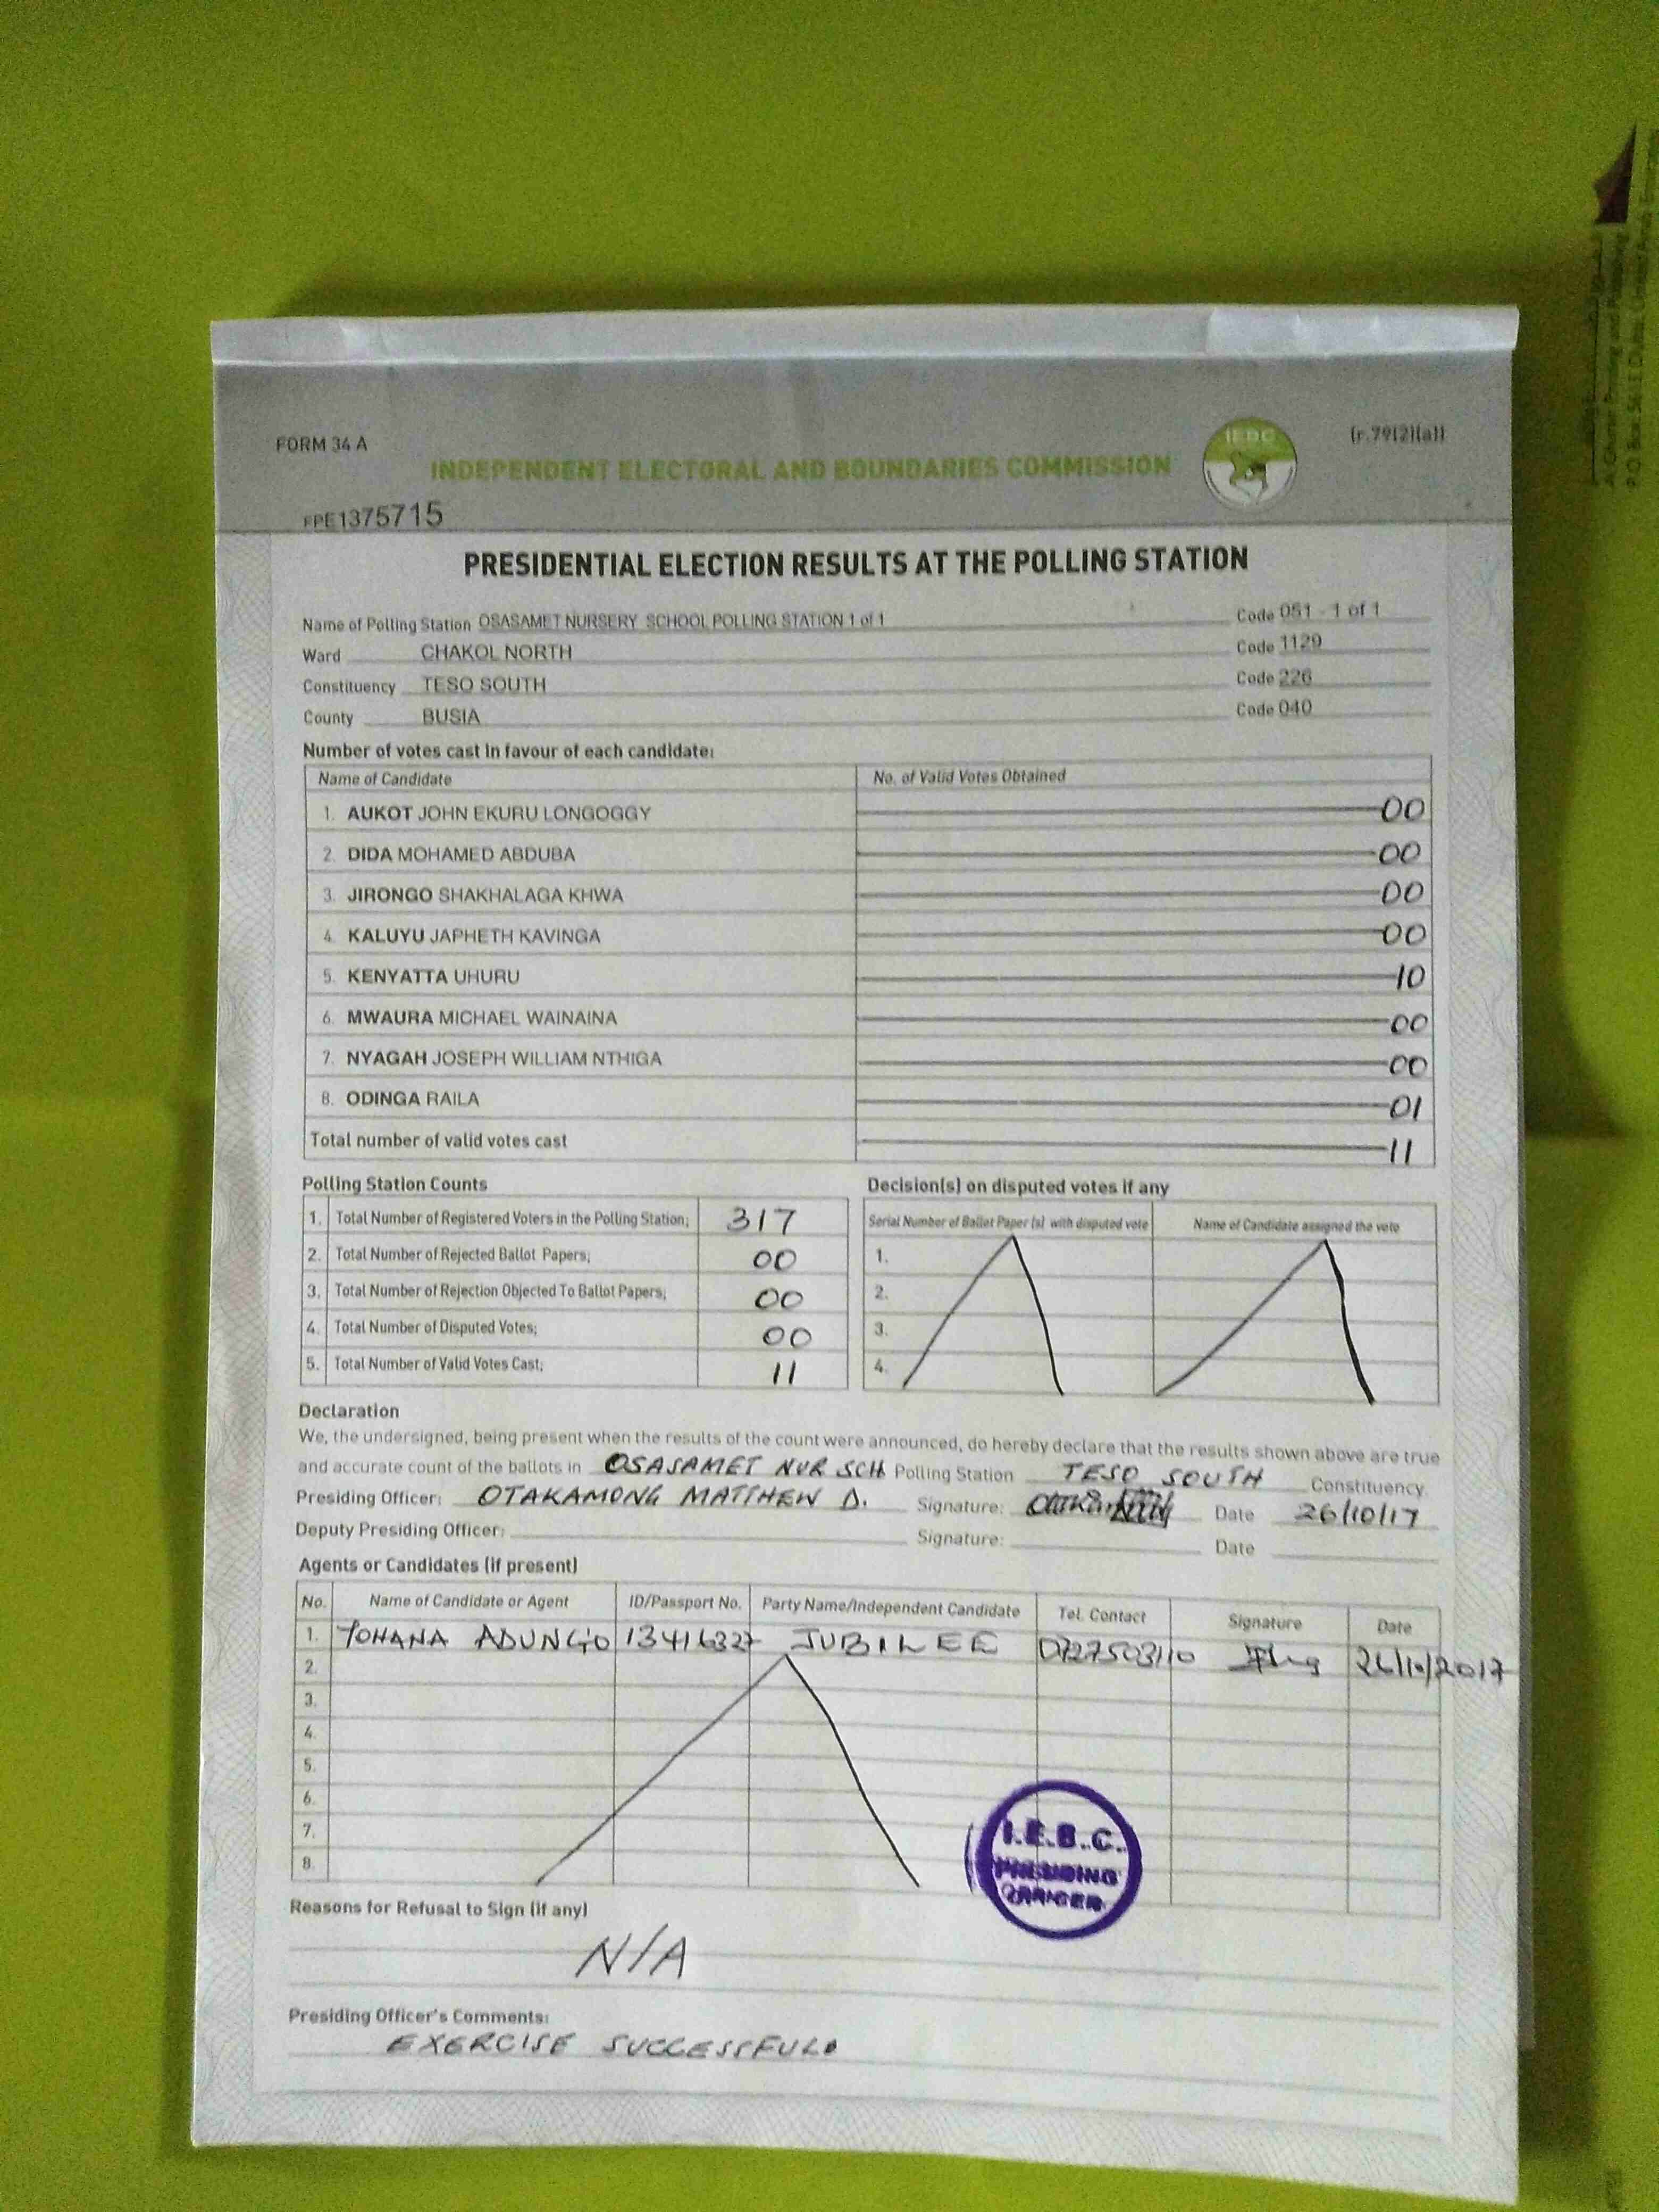 FORM 34 A
(r.79(2)(a))
IEBC
INDEPENDENT ELECTORAL AND BOUNDARIES COMMISSION
FPE1375715
PRESIDENTIAL ELECTION RESULTS AT THE POLLING STATION
Name of Polling Station OSASAMET NURSERY SCHOOL POLLING STATION 1 of 1 Code 051 - 1 of 1
Ward CHAKOL NORTH Code 1129
Constituency TESO SOUTH Code 226
County BUSIA Code 040
Number of votes cast in favour of each candidate:
Name of Candidate No. of Valid Votes Obtained
1. AUKOT JOHN EKURU LONGOGGY 00
2. DIDA MOHAMED ABDUBA 00
3. JIRONGO SHAKHALAGA KHWA 00
4. KALUYU JAPHETH KAVINGA 00
5. KENYATTA UHURU 10
6. MWAURA MICHAEL WAINAINA 00
7. NYAGAH JOSEPH WILLIAM NTHIGA 00
8. ODINGA RAILA 01
Total number of valid votes cast 11
Polling Station Counts
1. Total Number of Registered Voters in the Polling Station; 317
2. Total Number of Rejected Ballot Papers; 00
3. Total Number of Rejection Objected To Ballot Papers; 00
4. Total Number of Disputed Votes; 00
5. Total Number of Valid Votes Cast; 11
Decision(s) on disputed votes if any
Serial Number of Ballot Paper (s) with disputed vote Name of Candidate assigned the vote
1.
2.
3.
4.
Declaration
We, the undersigned, being present when the results of the count were announced, do hereby declare that the results shown above are true
and accurate count of the ballots in OSASAMET NUR SCH Polling Station TESO SOUTH Constituency
Presiding Officer: OTAKAMONG MATTHEW O. Signature: Date 26/10/17
Deputy Presiding Officer: Signature: Date
Agents or Candidates (if present)
No. Name of Candidate or Agent ID/Passport No. Party Name/Independent Candidate Tel. Contact Signature Date
1. YOHANA ADUNGO 13416327 JUBILEE 0727503110 26/10/2017
2.
3.
4.
5.
6.
7.
8.
I.E.B.C.
PRESIDING
OFFICER
Reasons for Refusal to Sign (if any)
N/A
Presiding Officer's Comments:
EXERCISE SUCCESSFUL.